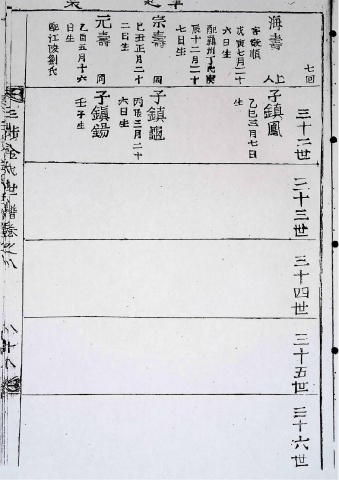 七回
三十二世
三十三世
三十四世
三十五世
三十六世
海壽
上人
字敬順
戊寅七月二十
六日生
辰十二月二十
七日生
子鎮鳳
乙巳三月七日
生
宗壽
同
己丑正月二十
二日生
子鎮龜
丙辰三月二十
六日生
元壽
同
乙酉五月十六
日生
配江陵劉氏
子鎮錫
壬子生
世譜卷之八
八十九